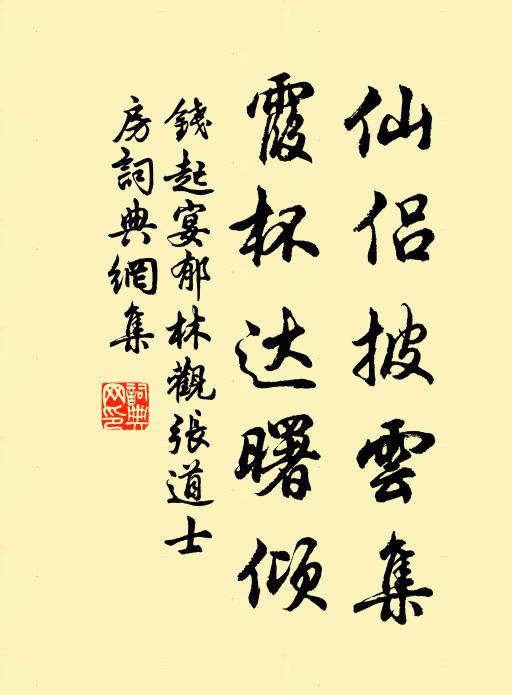 仙侣披雲集
霞杯达曙倾
錢起宴郁林觀張道士
房詞典網集
詞典网印